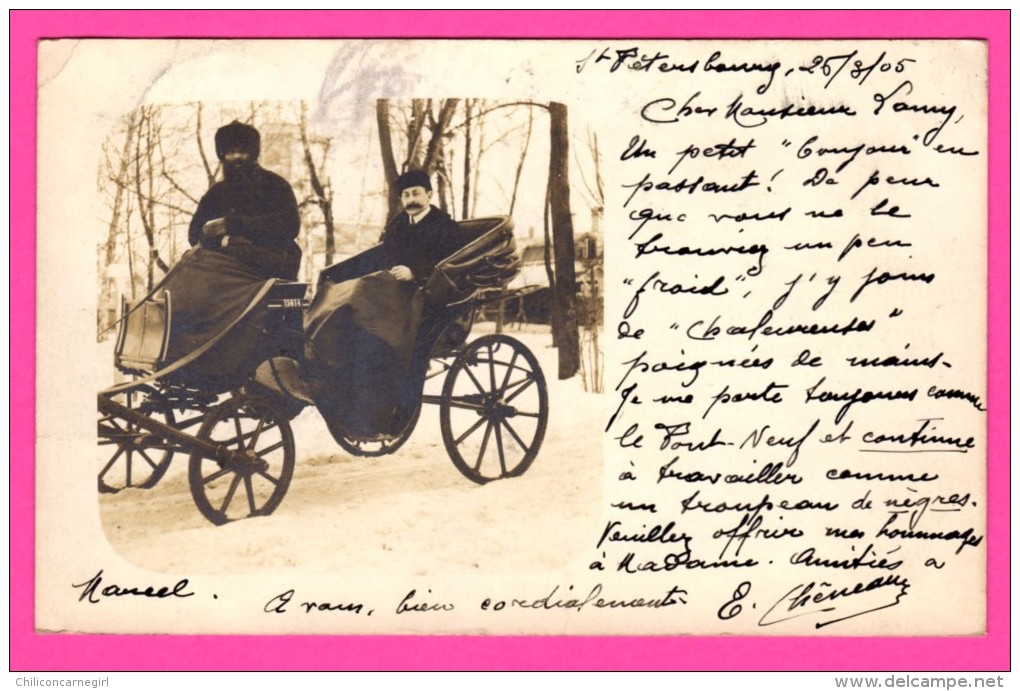 St Pétersbourg, 25/3/05
Cher Monsieur Lamy,
Un petit "bonjour" en
passant! De peur
que vous ne le
trouviez un peu
"froid", j'y joins
de "chaleureuses"
poignées de mains.
Je me porte toujours comme
le Pont-Neuf et continue
à travailler comme
un troupeau de nègres.
Veuillez offrir mes hommages
à Madame. Amitiés a
Marcel.
A vous, bien cordialement.
E. Chêneau
Chiliconcarnegirl
http://www.delcampe.net